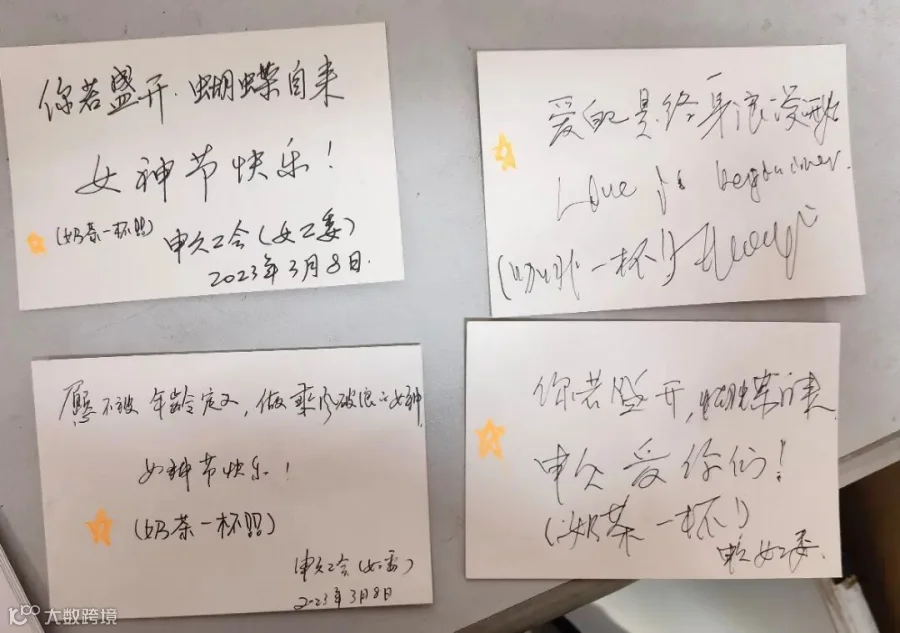 你若盛开,蝴蝶自来
女神节快乐!
(奶茶一杯照)
申久工会(女工委)
2023年3月8日.
爱的是终身浪漫
Love is
一杯
愿不被年龄定义,做乘风破浪的女神
女神节快乐!
(奶茶一杯照)
申久工会(女工委)
2023年3月8日
你若盛开,蝴蝶自来
申久爱你们!
(奶茶一杯!)
申久女工委.
大数跨境